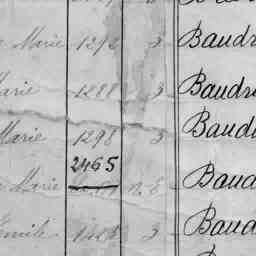 Marie 1292 3 Baudr
Marie 1288 3 Baudr
Marie 1298 3 Baud
2465
Marie Baud
Emile 3 Baud